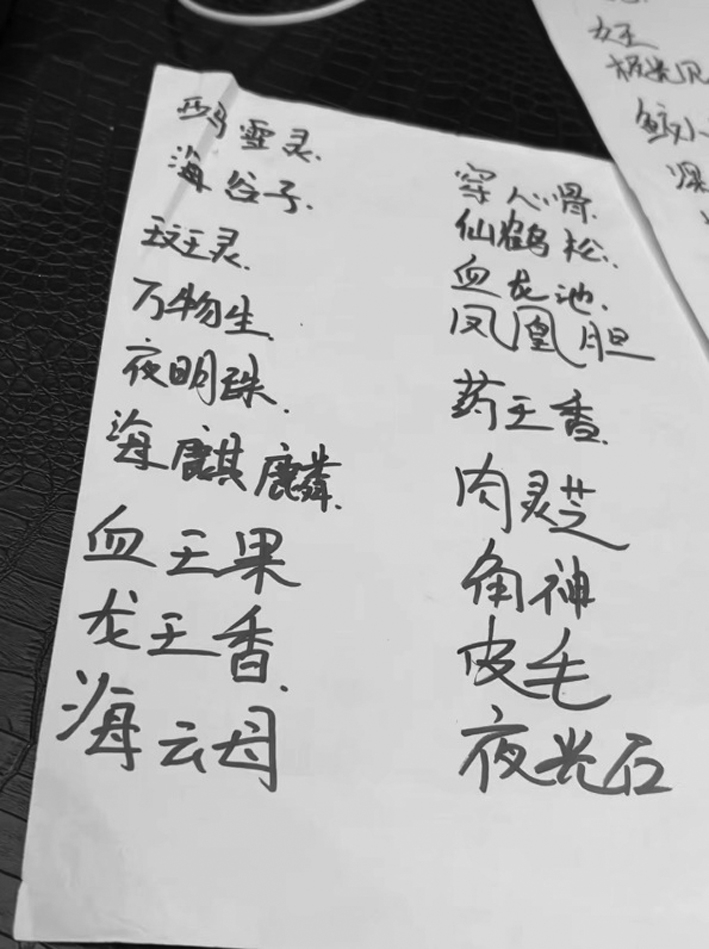 灵
海谷子.
斑王灵.
万物生.
夜明珠.
海麒麟.
血王果
龙王香.
海云母
穿心骨.
仙鹤松.
血龙池.
凤凰胆
药王香.
肉灵芝
角神
皮毛
夜光石
女王